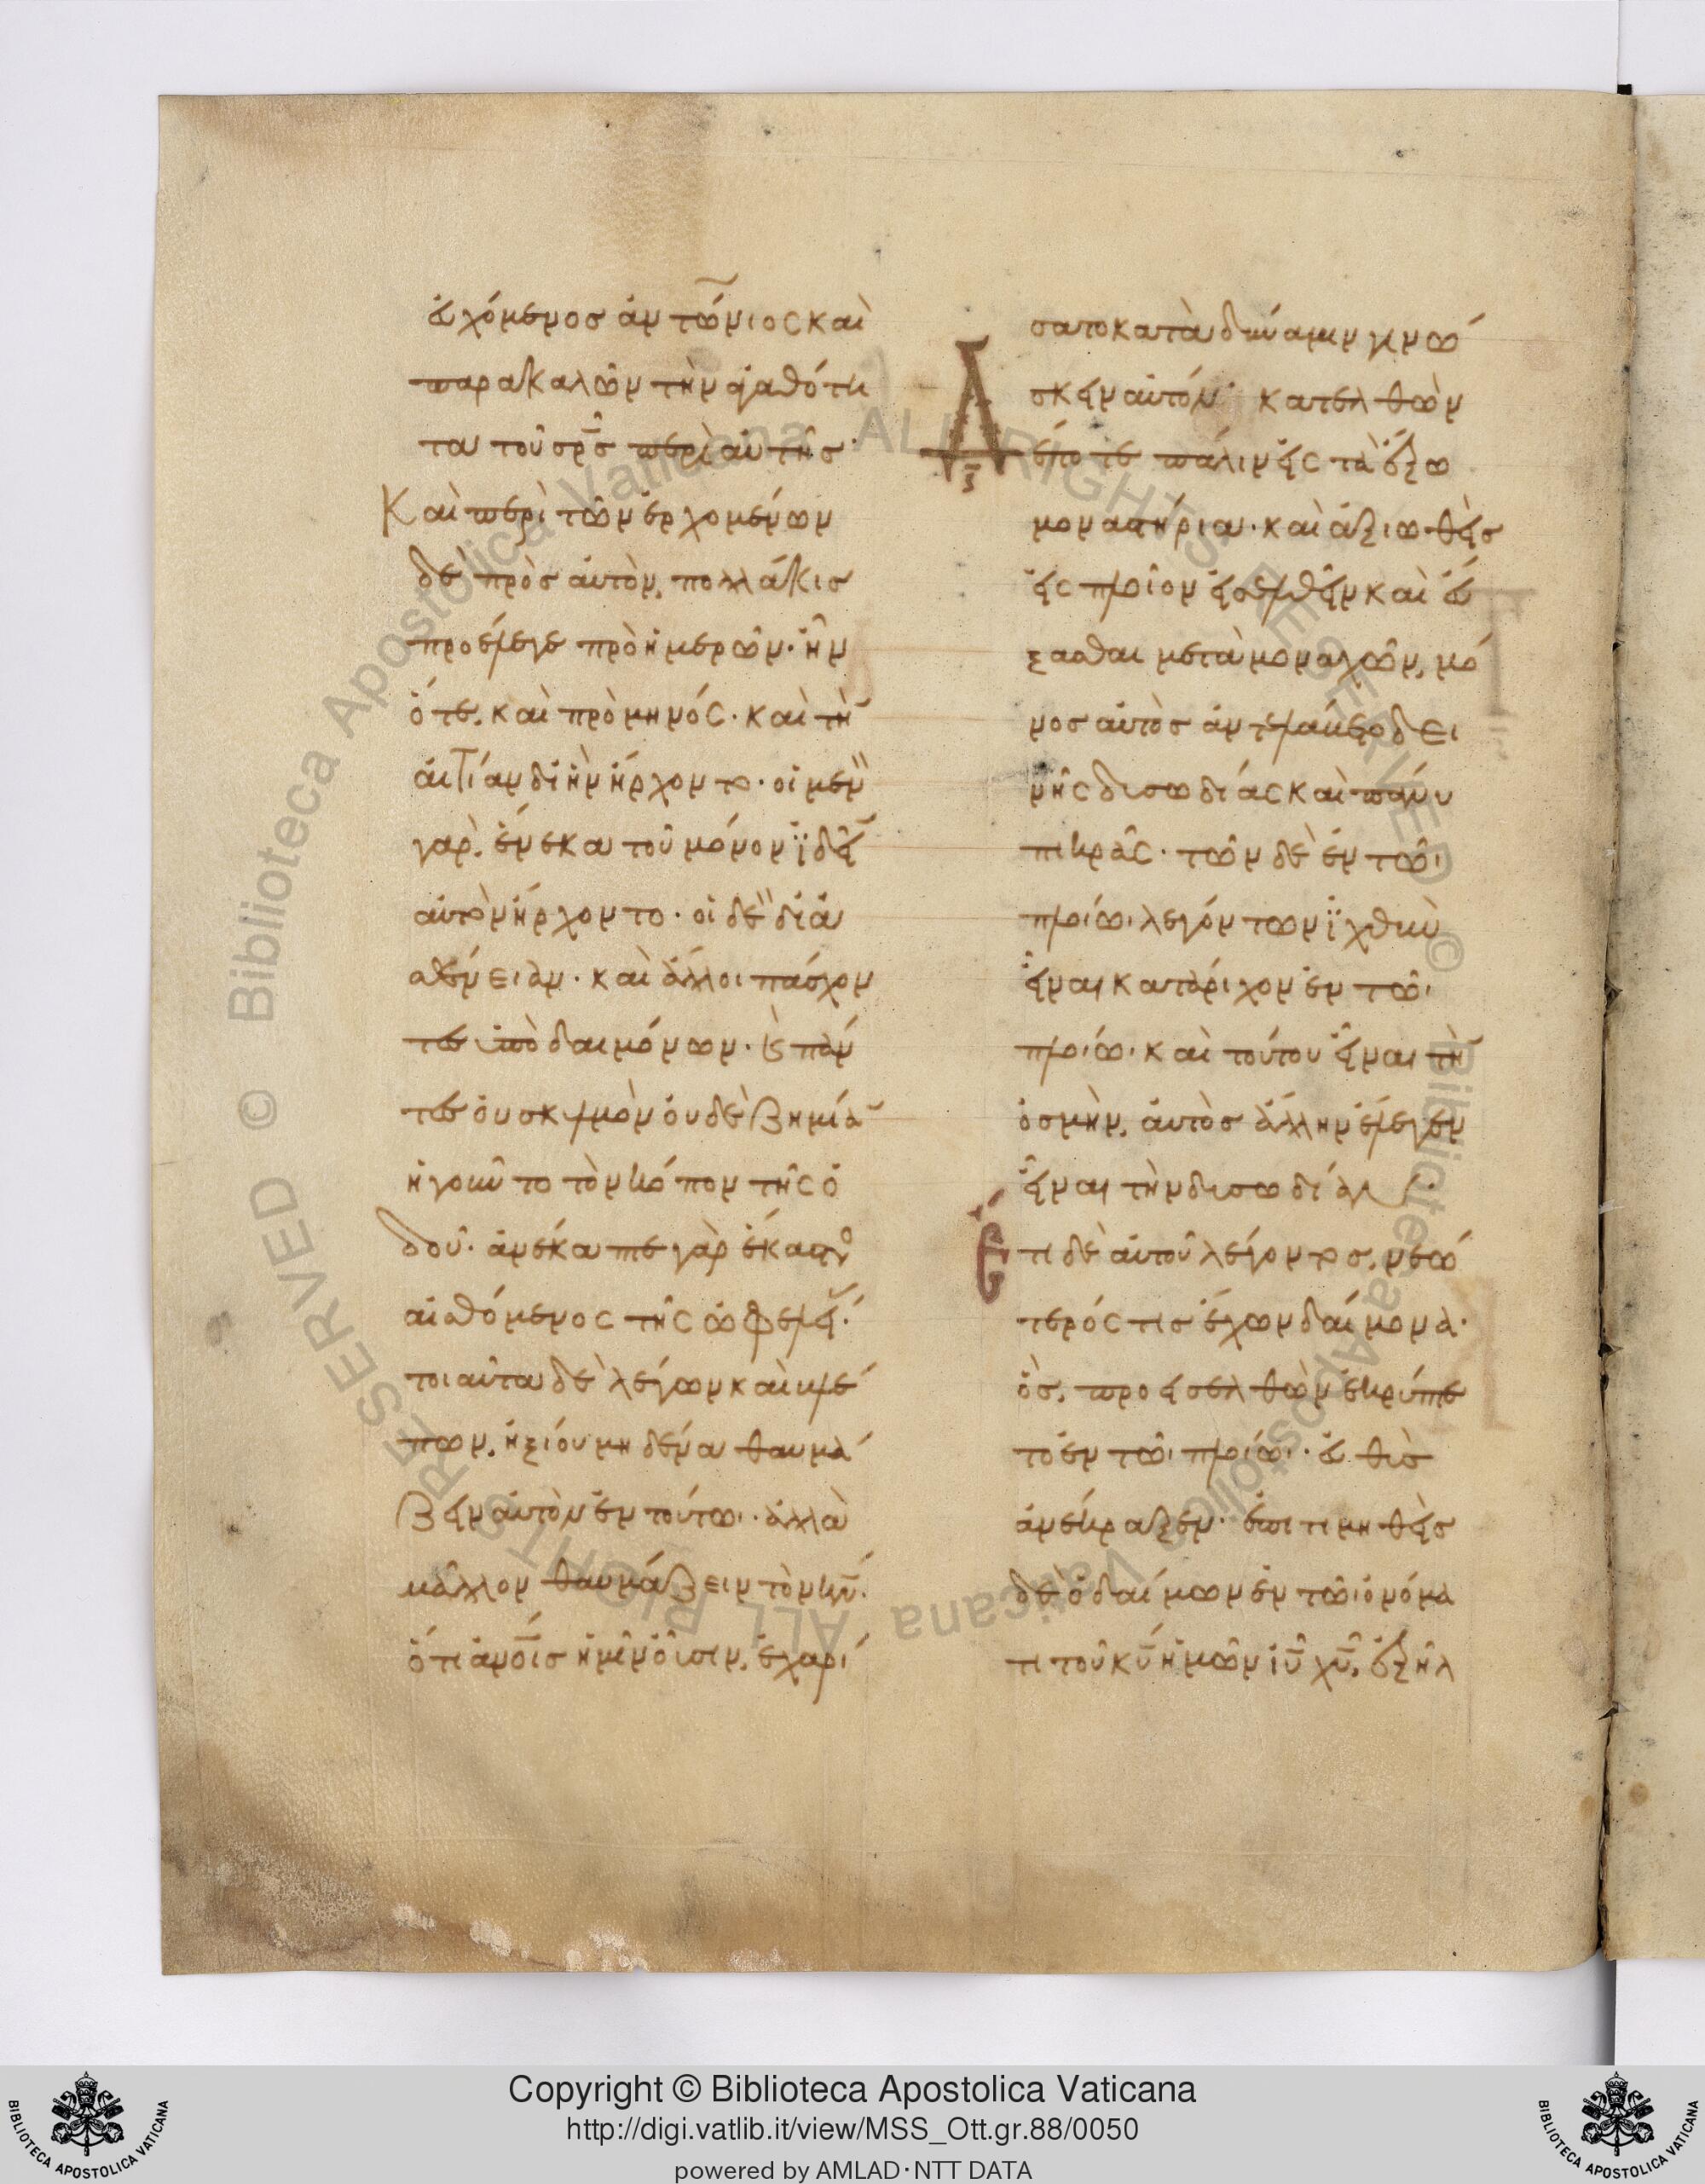 εὐχόμενος ἀντώνιος καὶ
παρακαλῶν τὴν ἀγαθότη
τα τοῦ σρ̅σ περὶ αὐτῆς·
Καὶ περὶ τῶν ἐρχομένων
δὲ πρὸς αὐτὸν, πολλάκις
προέλεγε πρὸ ἡμερῶν· ἦν
ὅτε, καὶ πρὸ μηνός· καὶ τὴ̅
αἰτίαν δι ἣν ἤρχοντο· οἱ μὲν
γὰρ, ἕνεκα τοῦ μόνον ἰδεῖ̅
αὐτὸν ἤρχοντο· οἱ δὲ διὰ
ἀσθένειαν· καὶ ἄλλοι πάσχον
τες ὑπὸ δαιμόνων· καὶ πάν
τες οὐ σκυλμὸν οὐδὲ ζημία̅
ἡγοῦντο τὸν κόπον τῆς ὁ
δοῦ· ἀνέκαμπτε γὰρ ἕκαστο
αἰσθόμενος τῆς ὠφελεί·
τοιαῦτα δὲ λέγων καὶ βλέ
πων, ἠξίου μηδένα θαυμά
ζειν αὐτὸν ἐν τούτωι· ἀλλὰ
μᾶλλον θαυμάζειν τὸν κν̅·
ὅτι ἀν̅οις ἡμῖν οὖσιν, ἐχαρί
σατο κατὰ δύναμιν γινώ
σκειν αὐτόν· κατελθὼν
Δέ ποτε πάλιν εἰς τὰ ἔξω
ξ̅
μοναστήρια· καὶ ἀξιωθεὶς
εἰς πλοῖον εἰσελθεῖν καὶ εὔ
ξασθαι μετὰ μοναχῶν, μό
νος αὐτὸς ἀντελάβετο δει
νῆς δυσωδίας καὶ πάνυ
πικρᾶς· τῶν δὲ ἐν τῶι
πλοίωι λεγόντων ἰχθὺ
εἶναι καὶ τάριχον ἐν τῶι
πλοίωι καὶ τούτου εἶναι τὴ̅
ὀσμὴν, αὐτὸς ἄλλην ἔλεγεν
εἶναι τὴν δυσωδίαν·
Ἔτι δὲ αὐτοῦ λέγοντος, νεώ
τερός τις ἔχων δαίμονα·
ὃς, προεισελθὼν ἐκρύπτε
το ἐν τῶι πλοίωι· εὐθὺς
ἀνέκραξεν· ἐπιτιμηθεὶς
δὲ ὁ δαίμων ἐν τῶι ὀνόμα
τι τοῦ κυ̅ ἡμῶν ἰυ̅ χυ̅, ἐξῆλ
Copyright © Biblioteca Apostolica Vaticana
http://digi.vatlib.it/view/MSS_Ott.gr.88/0050
powered by AMLAD·NTT DATA
BIBLIOTECA APOSTOLICA VATICANA
BIBLIOTECA APOSTOLICA VATICANA
Biblioteca Apostolica Vaticana ALL RIGHTS RESERVED ©
Biblioteca Apostolica Vaticana ALL RIGHTS RESERVED ©